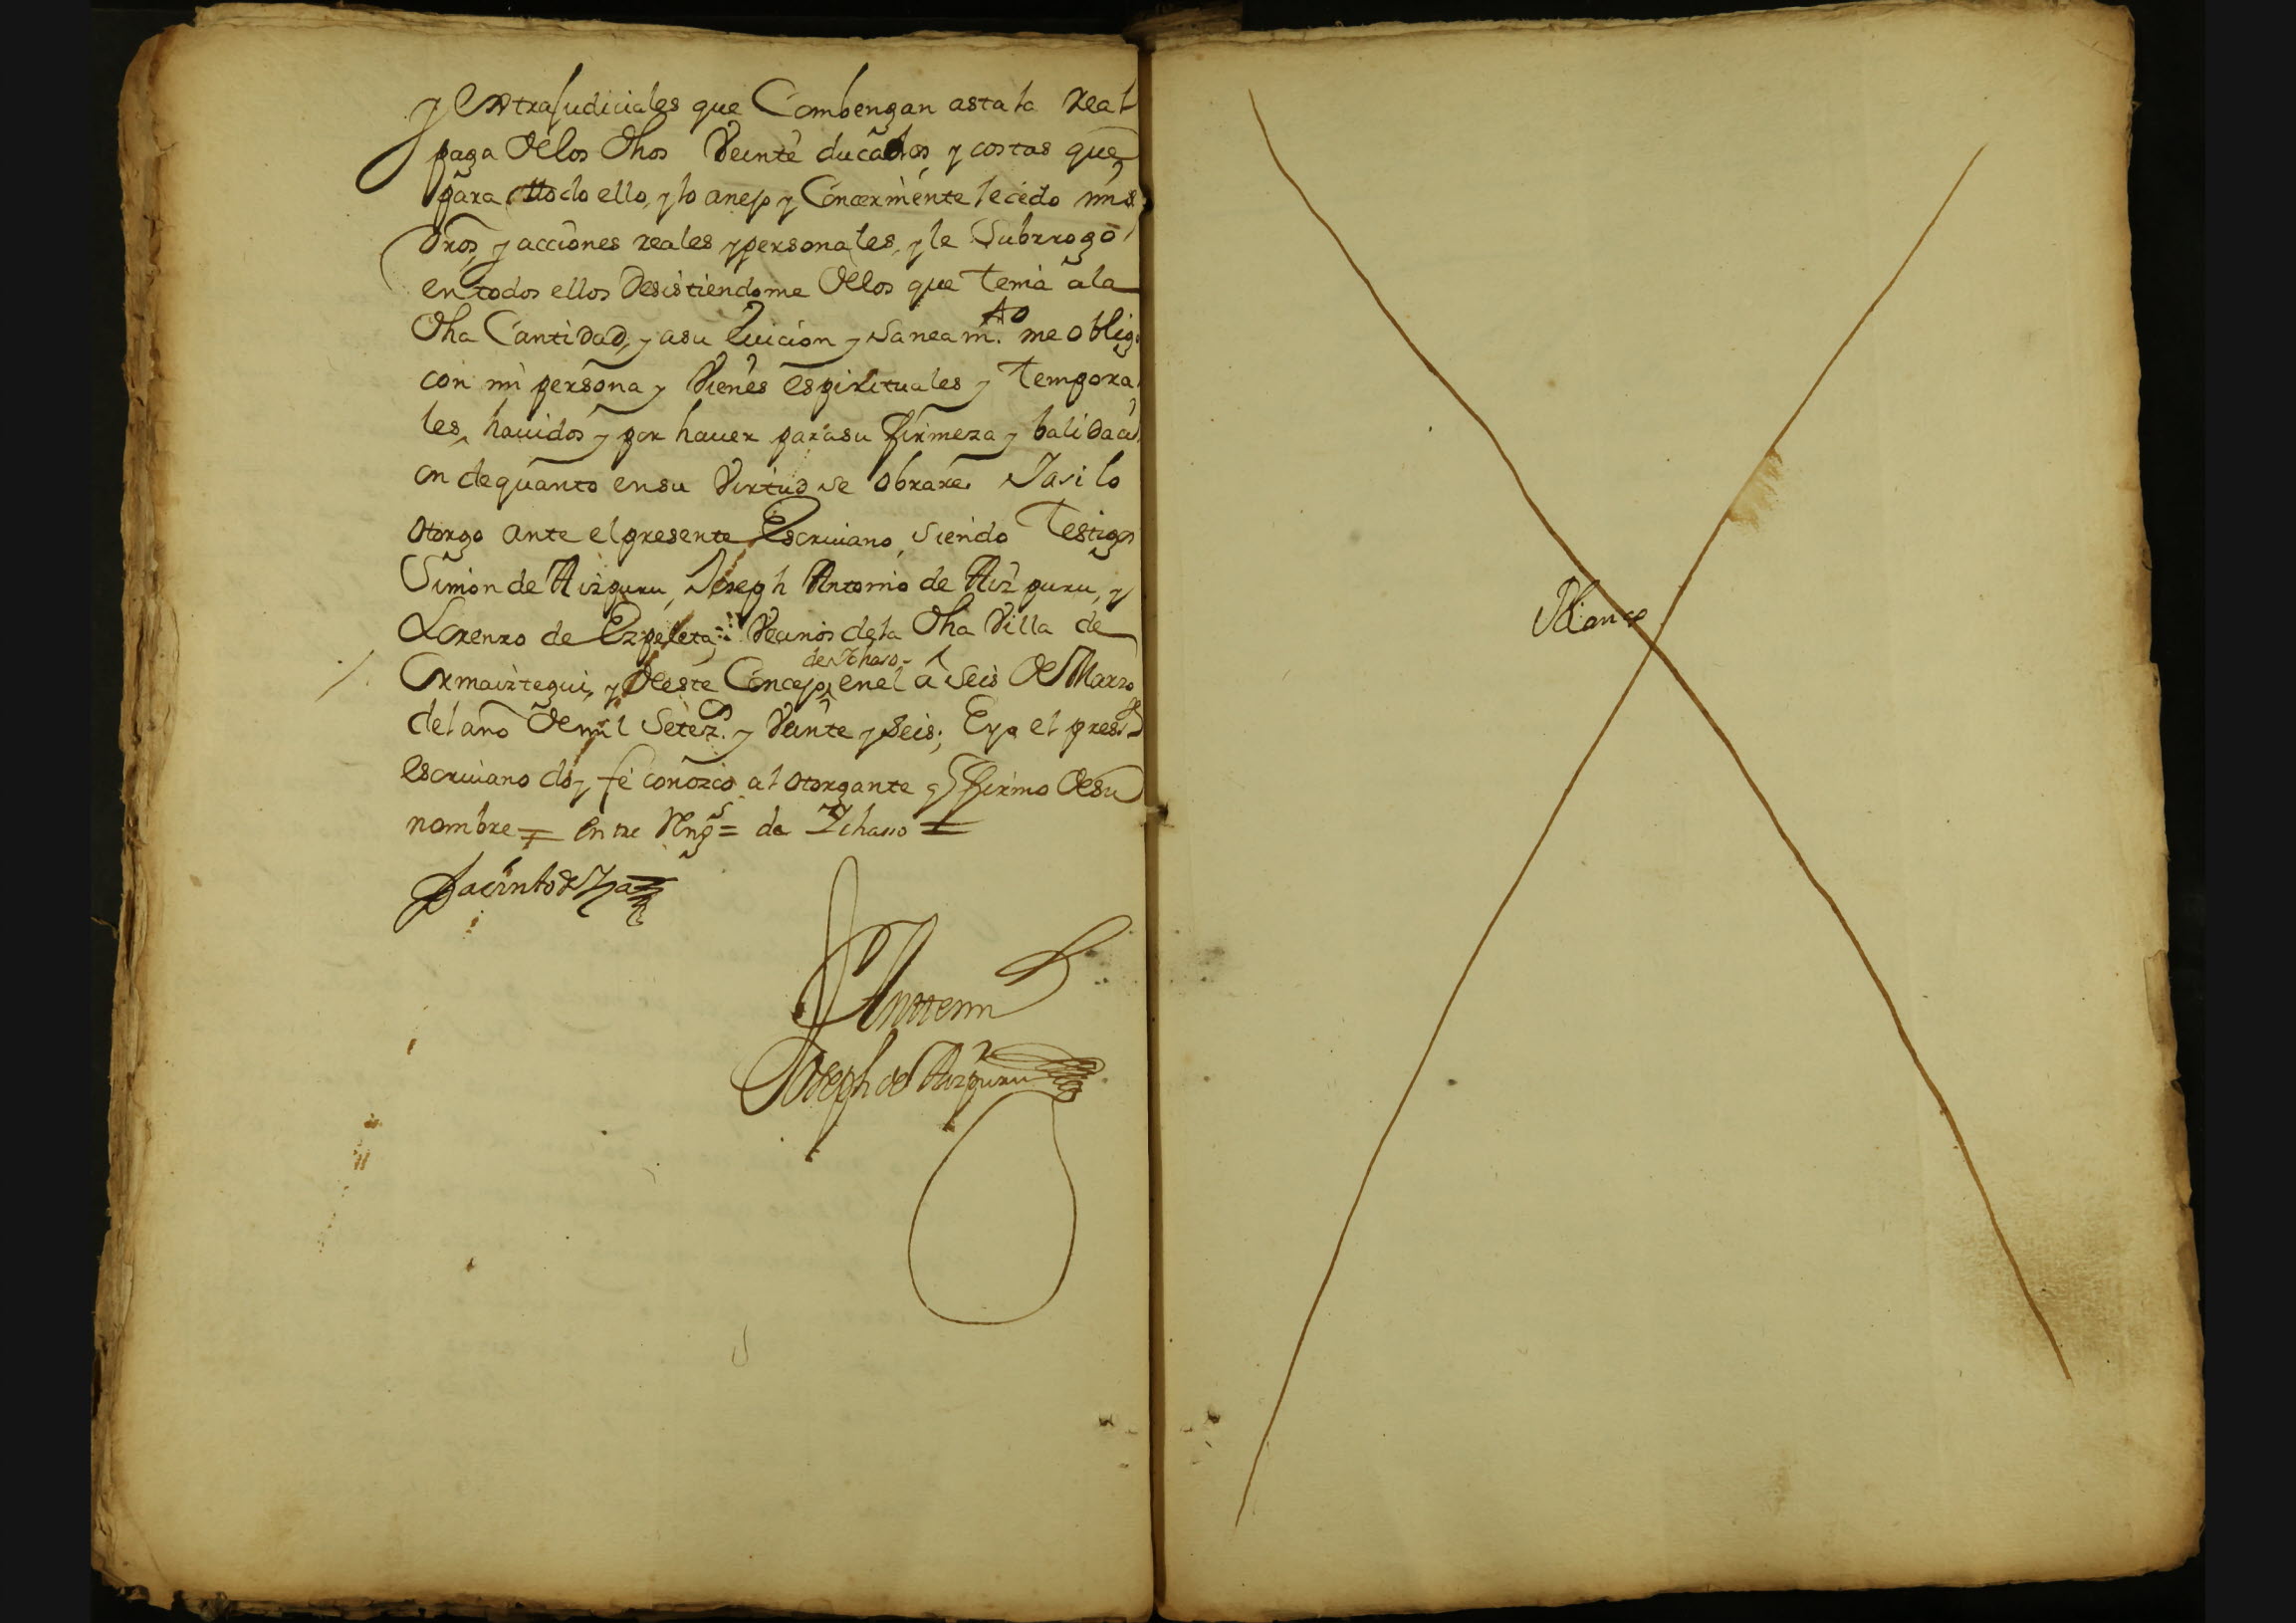 y Extrajudiciales que Combengan asta la real
paga delos dhos Veinte ducados, y costas que
para todo ello, y lo anejo y Concerniente le cedo mis
dros, y acciones reales y personales, y le Subrrogo
en todos ellos desistiendome delos que tenia ala
dha Cantidad, y asu Euicion y saneam.to me obligo
con mi persona y Vienes espirituales y tempora
les, hauidos y por hauer para su firmeza y balidaci
on de quanto en su Virtud se obrare. Iasi lo
otorgo ante el presente Escriuano, siendo testigos
Simon de Aizpuru, Joseph Antonio de Aizpuru, y
Lorenzo de Ezpeleta; Vecinos dela dha Villa de
de Ichaso
Ormaiztegui, y deste Concejo, enel a seis de Marzo
del año de mil Setez.s y Veinte y seis; E yo el pres.te
escriuano doy fe conozco al otorgante q firmo de su
nombre = entre Reng.s = de Ichasso =
Jacinto de
Antemi
Joseph de Aizpuru
Blanco